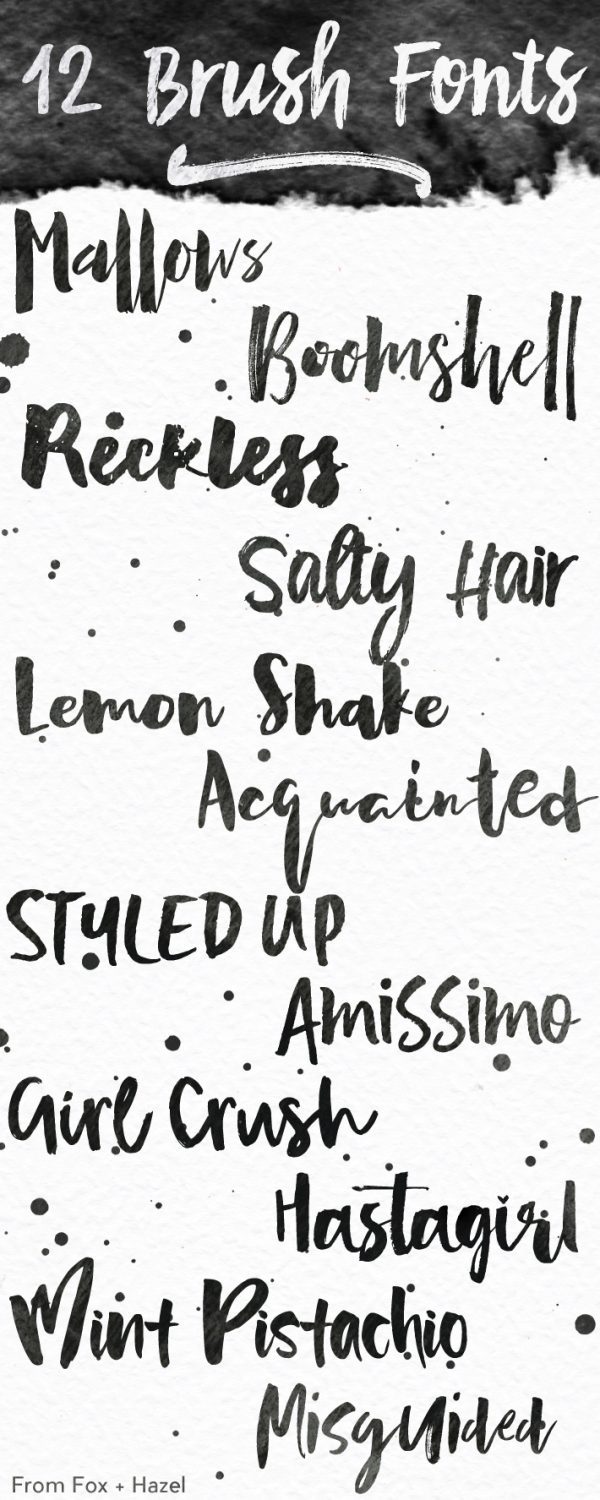 12 Brush Fonts
Mallows
Boomshell
Reckless
Salty Hair
Lemon Shake
Acquainted
STYLED UP
Amissimo
Girl Crush
Hastagirl
Mint Pistachio
Misguided
From Fox + Hazel